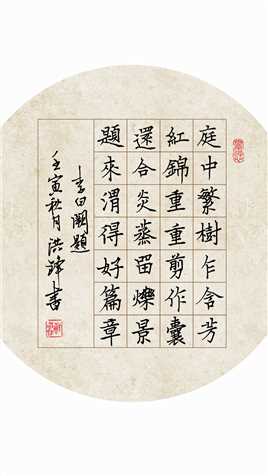 庭中繁樹乍含芳
紅錦重重剪作囊
還合炎蒸留爍景
題來消得好篇章
李白闕題
壬寅秋月洪鐸書